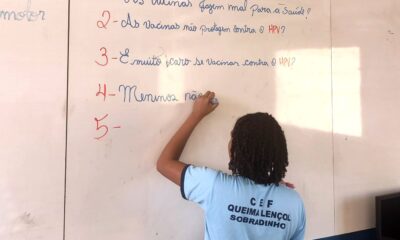 motor
vacinas fazem mal para a saúde?
2- As vacinas não protegem contra o HPV?
3- É muito caro se vacinar contra o HPV?
4- Meninos não
5-
CEF
QUEIMA LENÇOL
SOBRADINHO